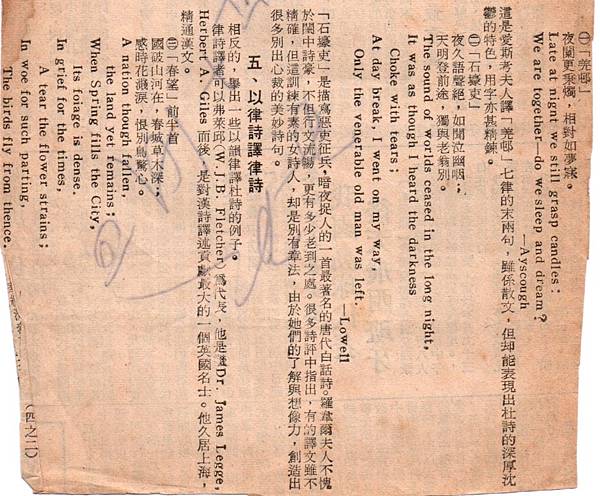 ㊀「羌邨」
夜闌更秉燭，相對如夢寐。
Late at night we still grasp candles:
We are together—do we sleep and dream?
—Ayscough
這是愛斯考夫人譯「羌邨」七律的末兩句，雖係散文，但却能表現出杜詩的深厚沈
鬱的特色，用字亦甚精鍊。
㊁「石壕吏」
夜久語聲絕，如聞泣幽咽；
天明登前途，獨與老翁別。
The sound of worlds ceased in the long night,
It was as though I heard the darkness
Choke with tears;
At day break, I went on my way,
Only the venerable old man was left.
—Lowell
「石壕吏」是描寫惡吏征兵，暗夜捉人的一首最著名的唐代白話詩。羅韋爾夫人不愧
於閨中詩豪，不但行文流暢，更有多少老到之處。很多詩評中指出，有的譯文雖不
精確，但這訓練有素的女詩人，却是別有章法，由於她們的了解與想像力，創造出
很多別出心裁的美妙詩句。
五、以律詩譯律詩
相反的，舉出一些以韻律譯杜詩的例子。
律詩譯者可以弗萊邱（W.J.B. Fletcher）為代表，他是繼Dr. James Legge,
Herbert A. Giles 而後，是對漢詩譯述貢獻最大的一個英國名士。他久居上海，
精通漢文。
㊂「春望」前半首
國破山河在，春城草木深；
感時花濺淚，恨別鳥驚心。
A nation though fallen,
the land yet remains;
When Spring fills the City,
Its foiage is dense.
In grief for the times,
A tear the flower strains;
In woe for such parting,
The birds fly from thence.
（四之二）